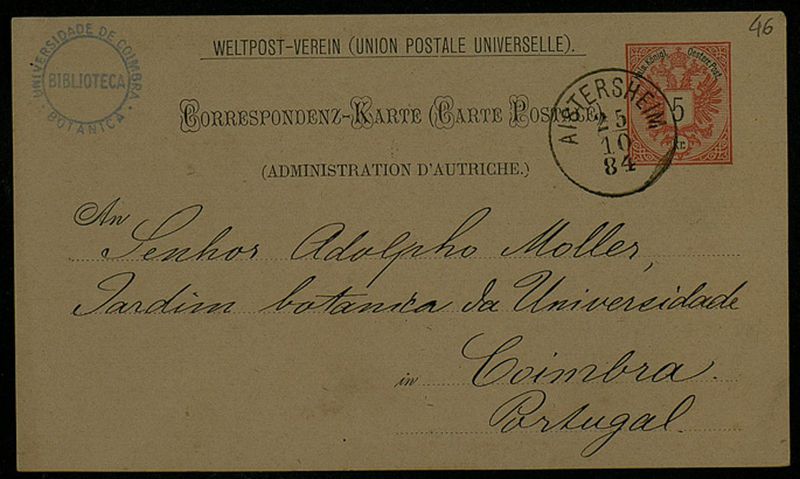 46
UNIVERSIDADE DE COIMBRA
BIBLIOTECA
BOTANICA
WELTPOST-VEREIN (UNION POSTALE UNIVERSELLE).
CORRESPONDENZ-KARTE (CARTE POSTALE)
(ADMINISTRATION D'AUTRICHE.)
Königl. Oesterr. Post.
5
Kr.
AISTERSHEIM
25
10
84
An
Senhor Adolpho Moller,
Jardim botanica da Universidade
in Coimbra.
Portugal.